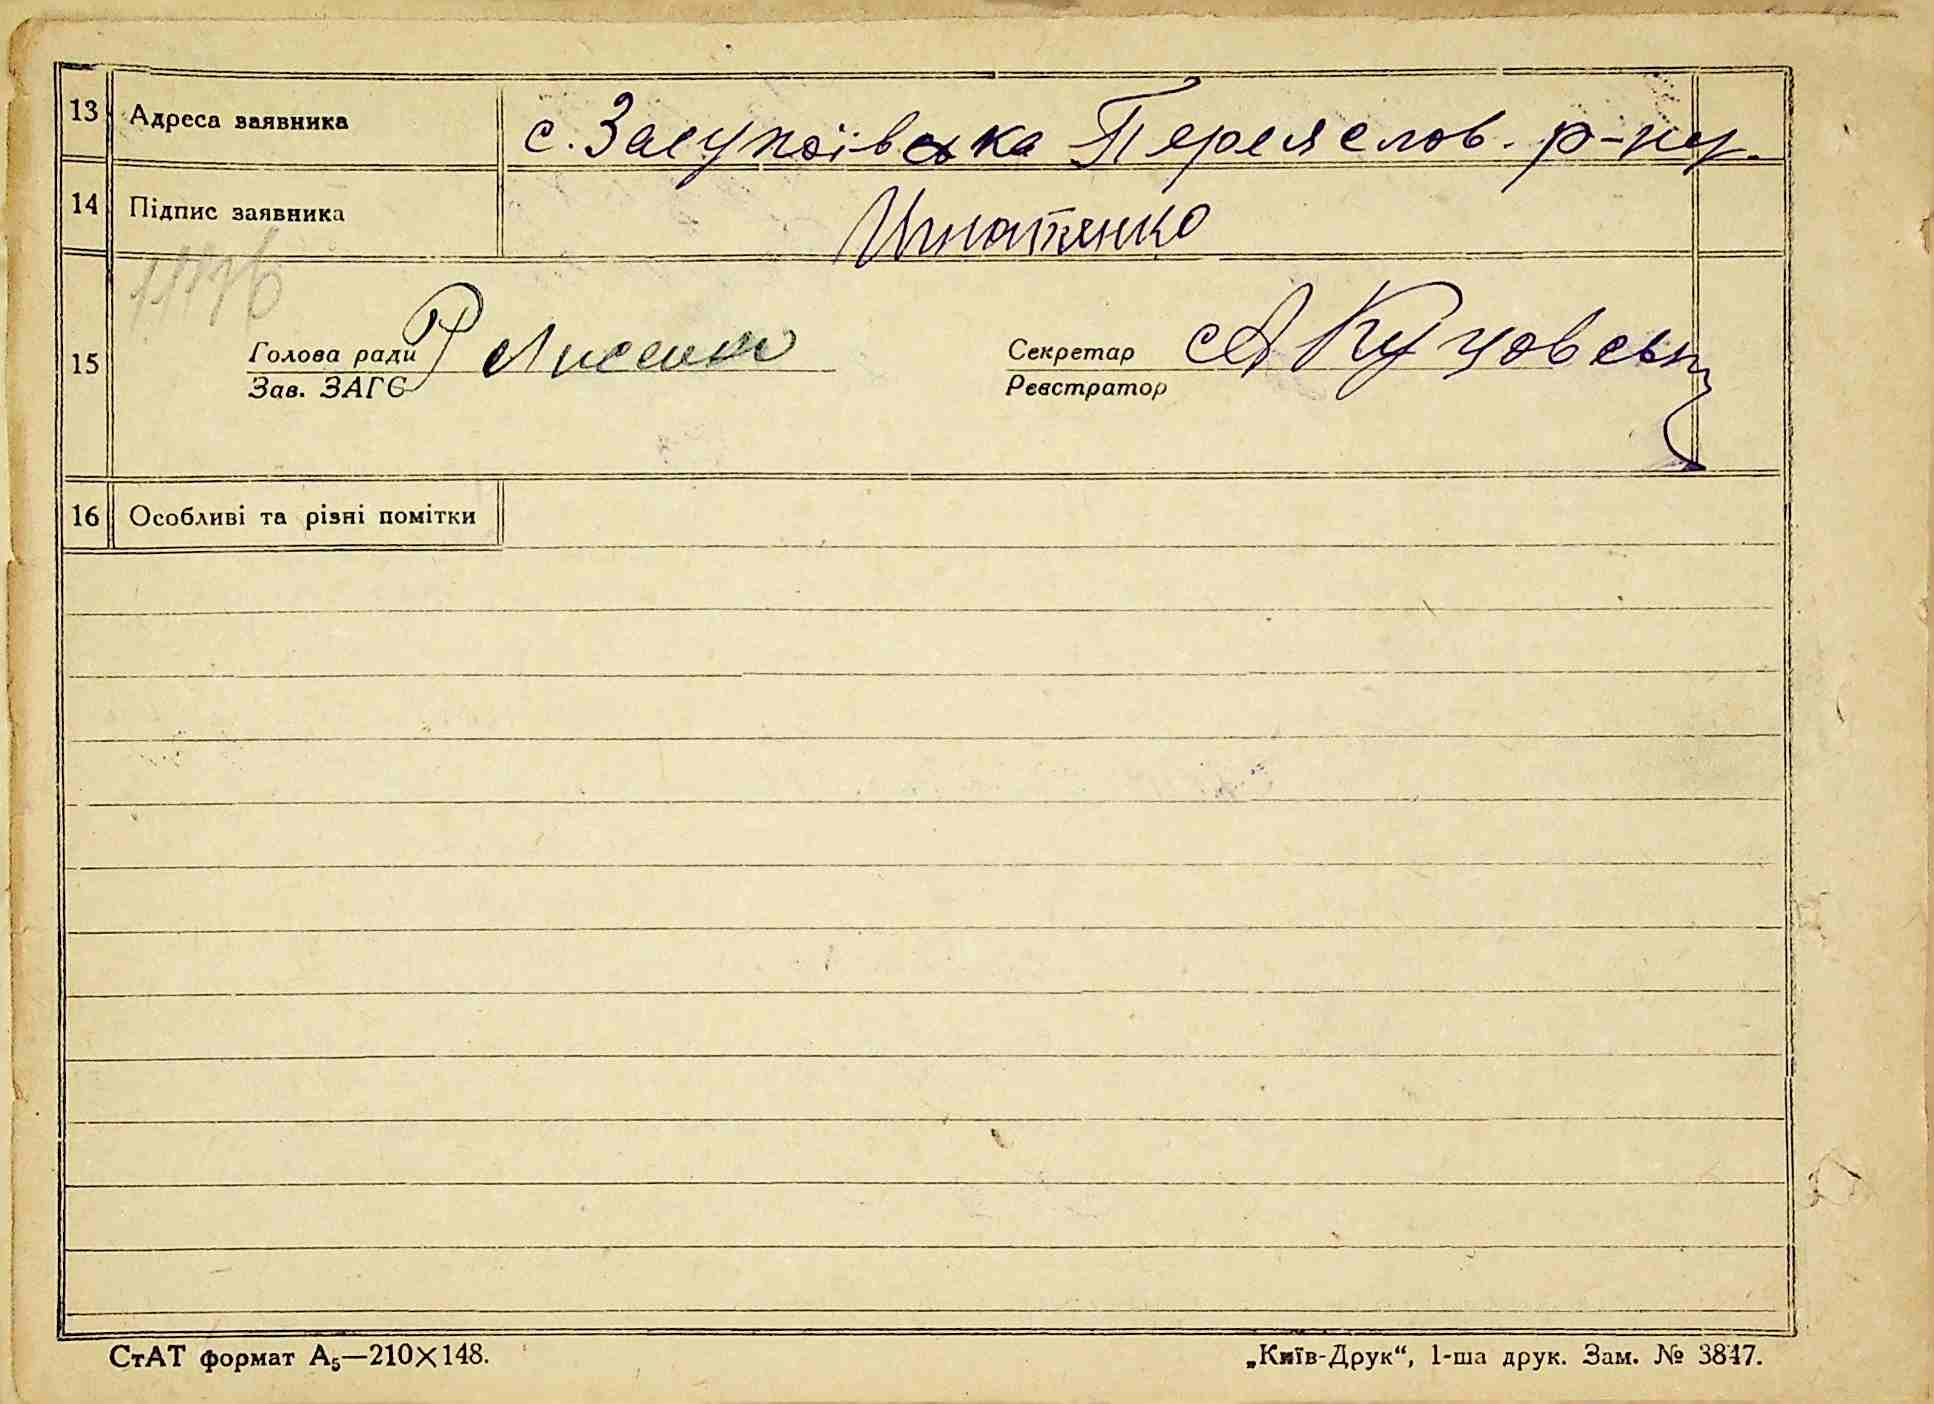 13 Адреса заявника с. Засупоївка Переяслов. р-ну.
14 Підпис заявника Игнатенко
15 Голова ради Лисенко Секретар А Куцовськ
Зав. ЗАГС Реєстратор
16 Особливі та різні помітки
СтАТ формат А₅—210×148. „Київ-Друк“, 1-ша друк. Зам. № 3847.